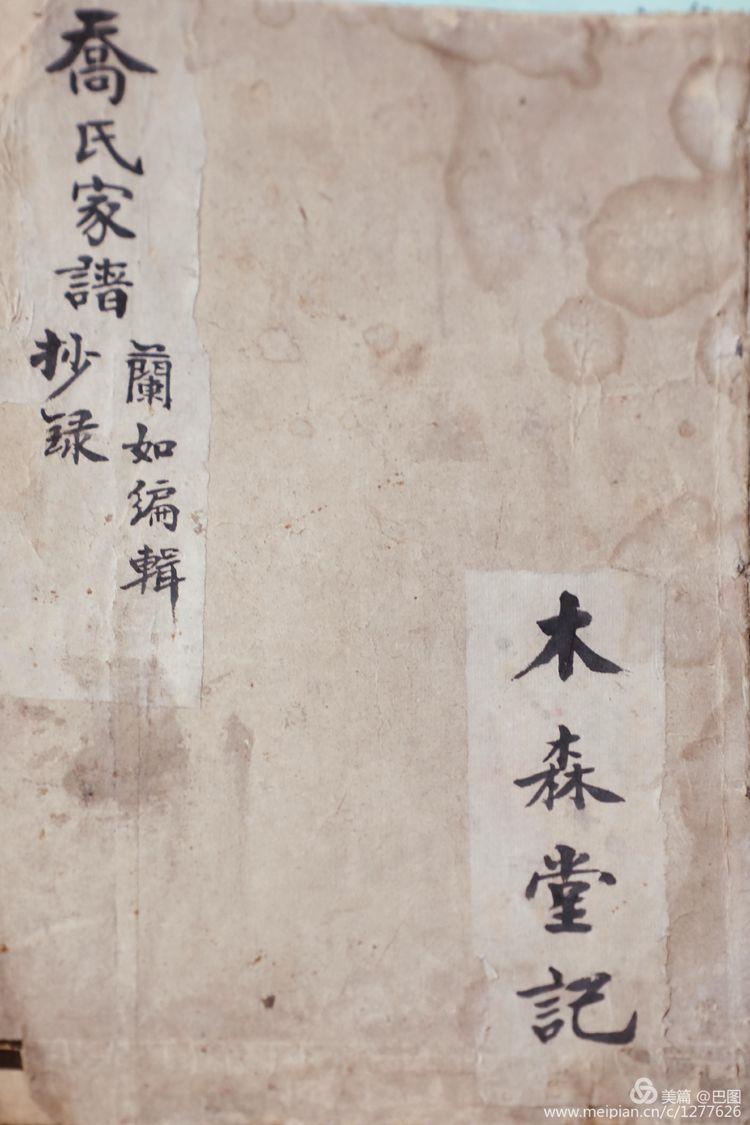 喬氏家譜
蘭如編輯
抄録
木森堂記
美篇 @巴图
www.meipian.cn/c/1277626